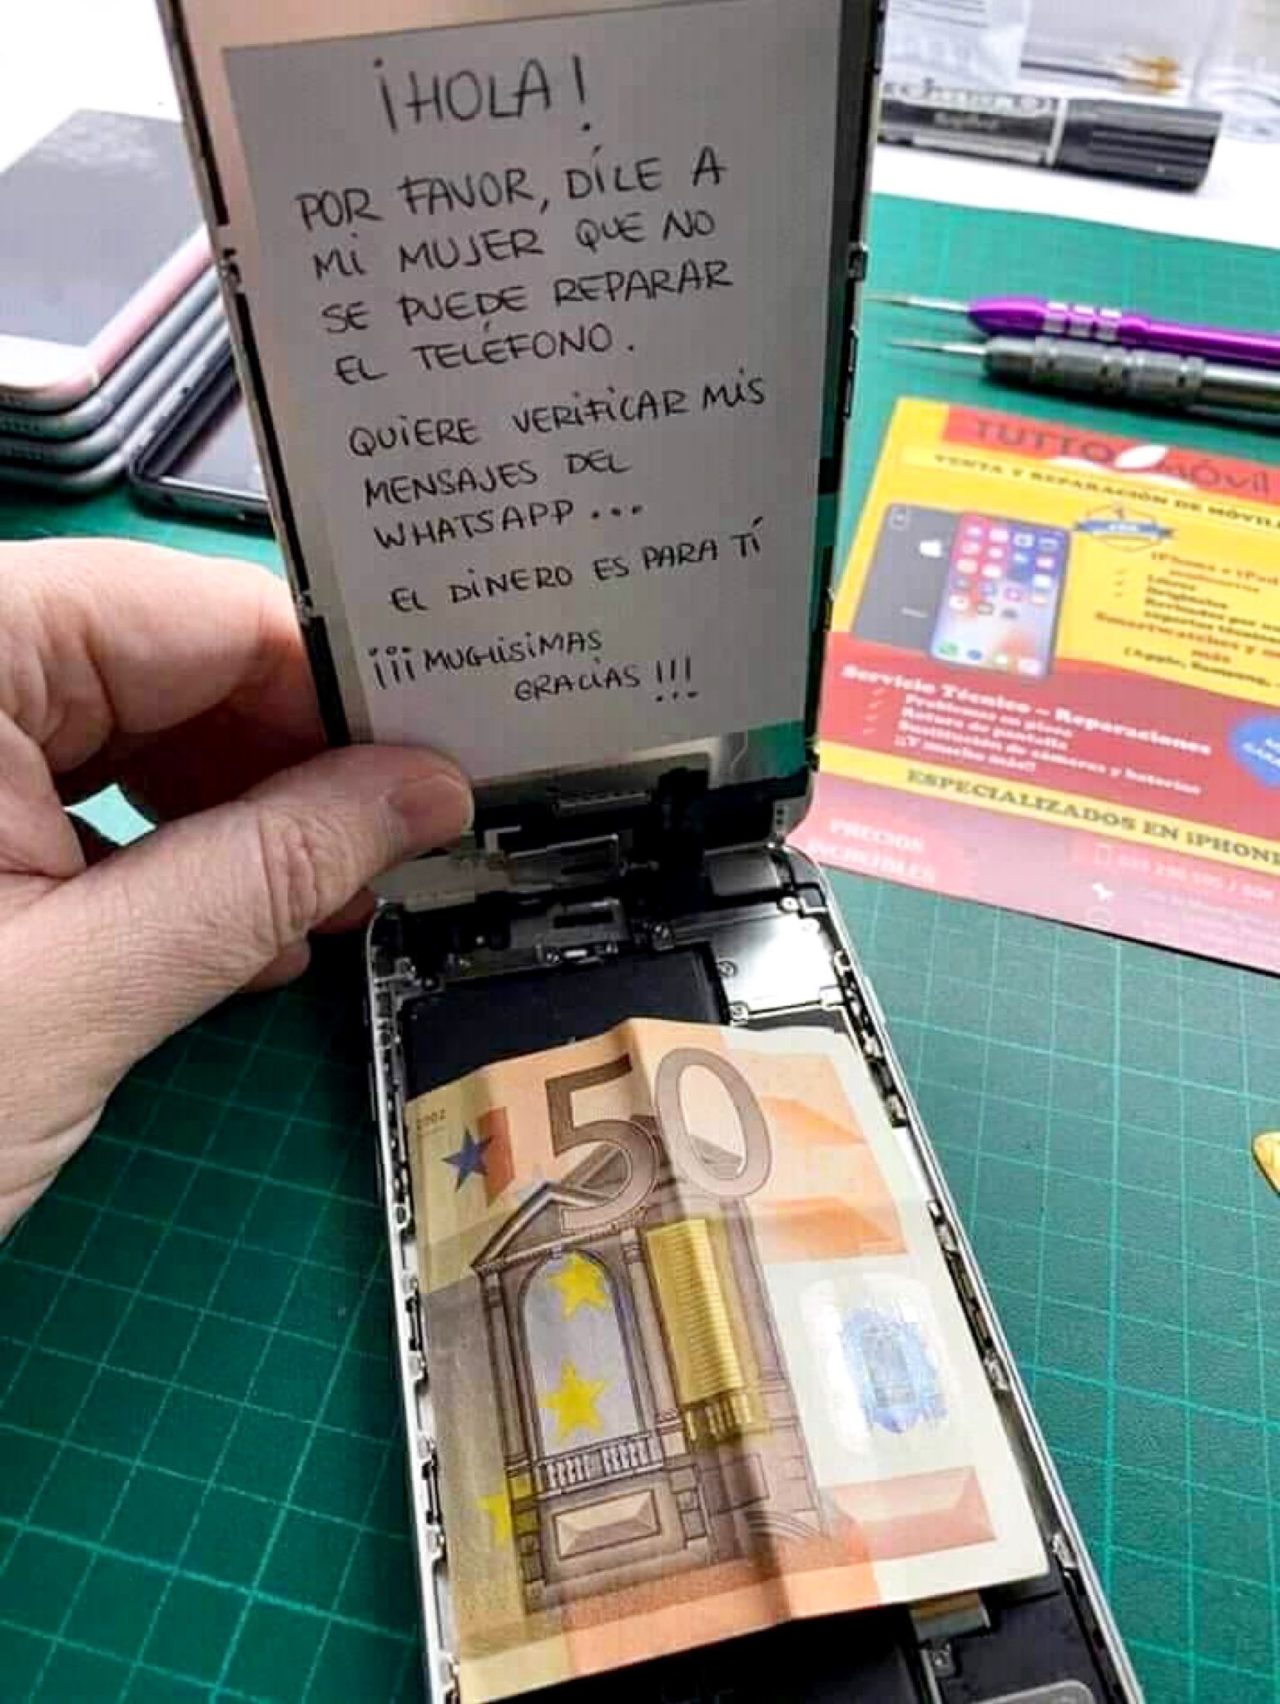 ¡HOLA!
POR FAVOR, DÍLE A
MI MUJER QUE NO
SE PUEDE REPARAR
EL TELÉFONO.
QUIERE VERIFICAR MIS
MENSAJES DEL
WHATSAPP...
EL DINERO ES PARA TÍ
¡¡¡MUCHISIMAS
GRACIAS!!!
TUTTO MÓVIL
VENTA Y REPARACIÓN DE
Servicio Técnico - Reparaciones
Rotura de pantalla
Sustitución de cámaras y baterías
¡¡Y mucho más!!
ESPECIALIZADOS EN iPHONE
PRECIOS
INCREIBLES
2002
50